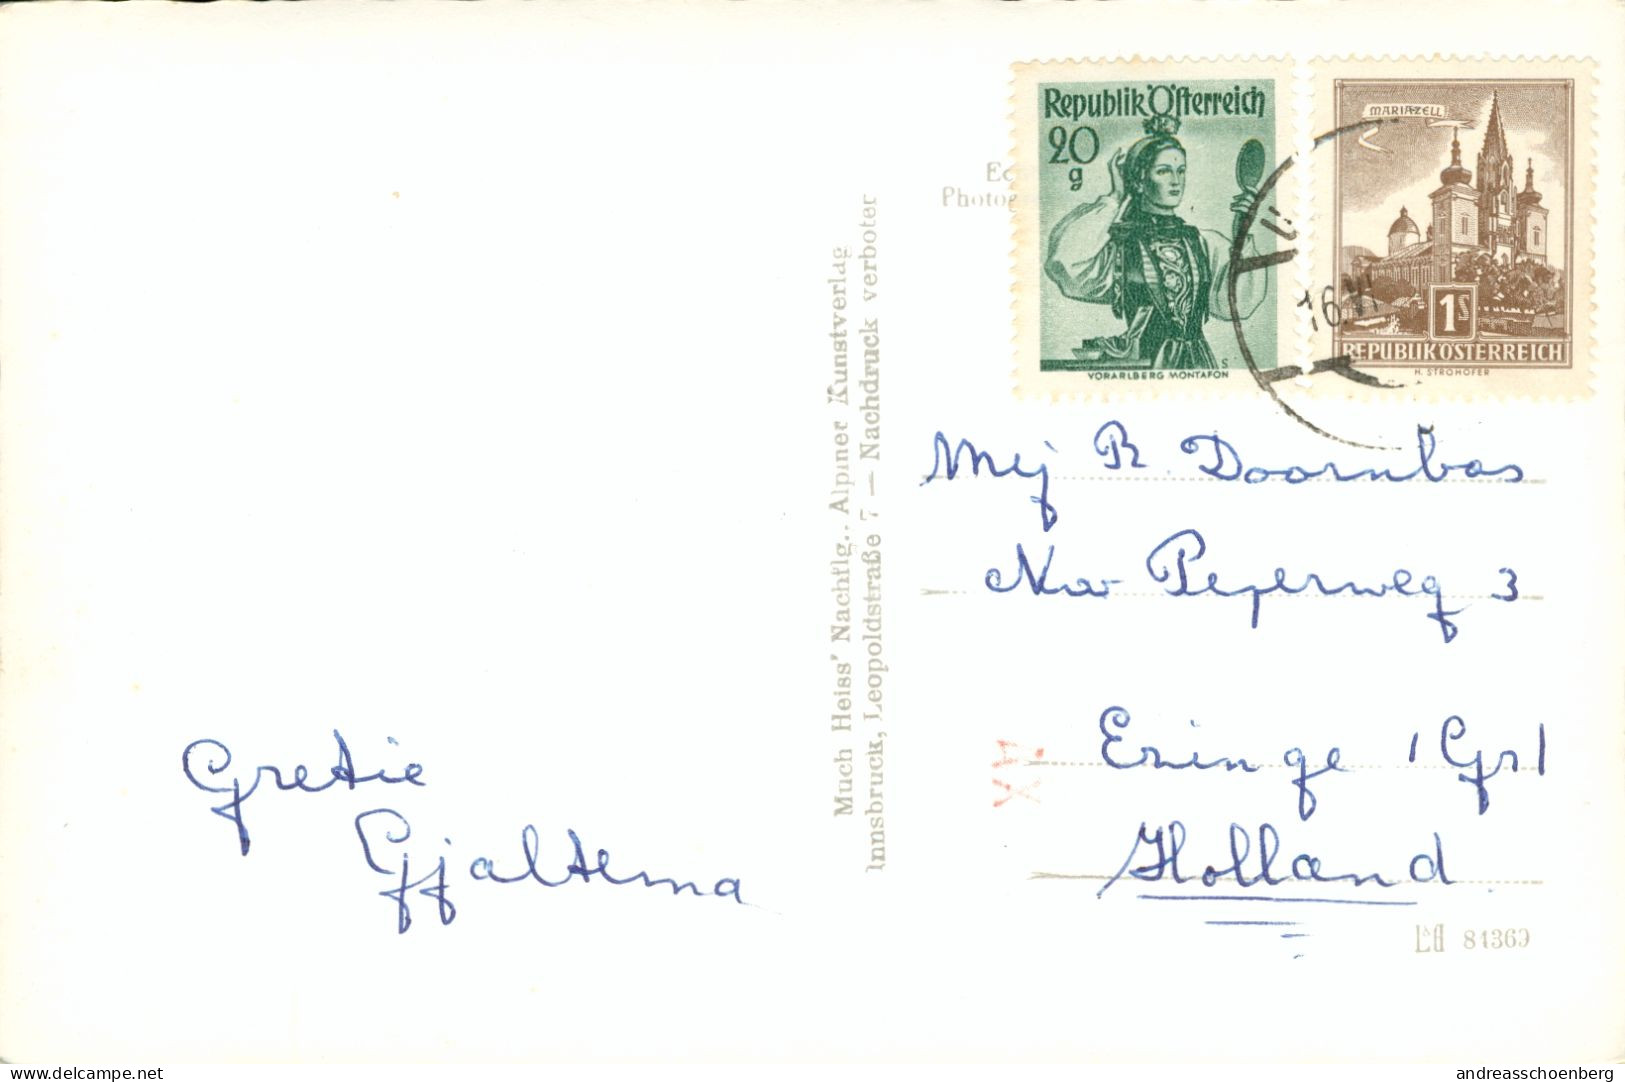 Republik Österreich
20
g
VORARLBERG MONTAFON
S
MARIAZELL
1S
REPUBLIK ÖSTERREICH
H. STROHOFER
16.VI
Photog
Much Heiss' Nachflg., Alpiner Kunstverlag
Innsbruck, Leopoldstraße 7 — Nachdruck verboten
Mej R. Doornbos
Nw Peperweg 3
Ezinge (Gr)
Holland
Gretie
Gjaltema
81369
www.delcampe.net
andreasschoenberg